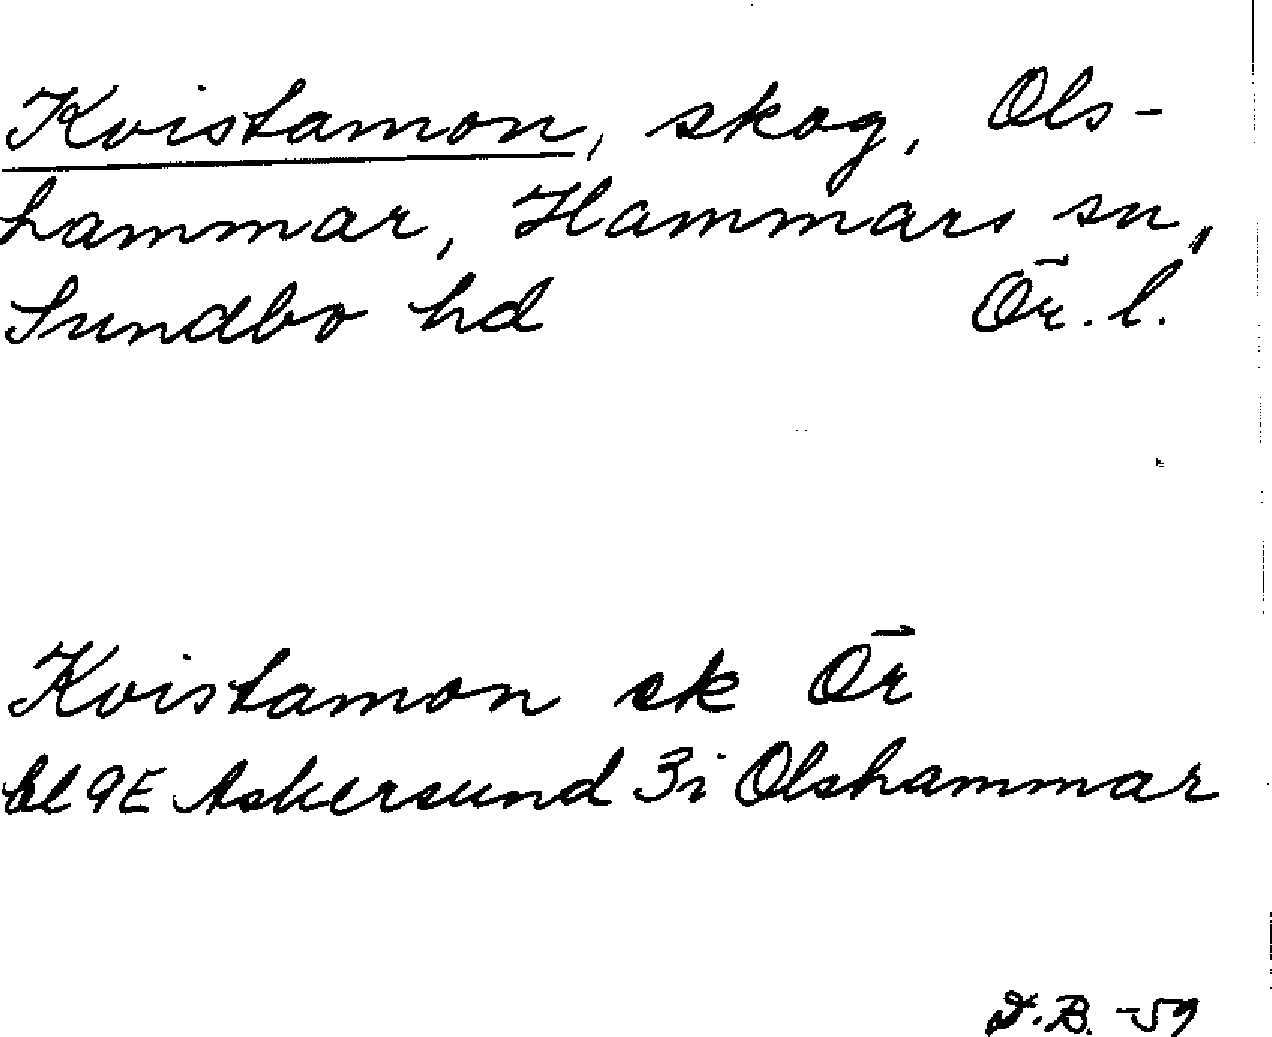 Kvistamon, skog, Ols-
hammar, Hammars sn,
Sundbo hd Ör. l.
Kvistamon sk Ör
bl 9E Askersund 3i Olshammar
D.B. -59